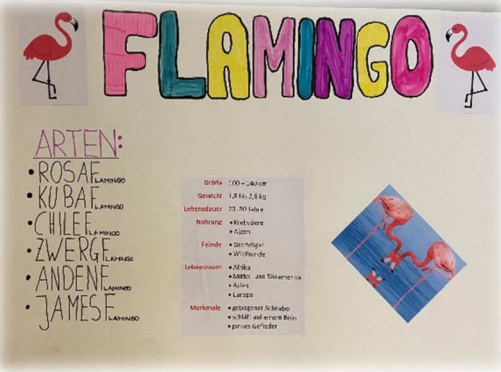 FLAMINGO
ARTEN:
• ROSAFLAMINGO
• KUBAFLAMINGO
• CHILEFLAMINGO
• ZWERGFLAMINGO
• ANDENFLAMINGO
• JAMESFLAMINGO
Größe 100 – 140 cm
Gewicht
Lebensdauer
Nahrung • Krebstiere
• Algen
Feinde
• Wildhunde
Lebensraum • Afrika
• Mittel- und Südamerika
• Asien
• Europa
Merkmale • gebogener Schnabel
• schläft auf einem Bein
• pinkes Gefieder